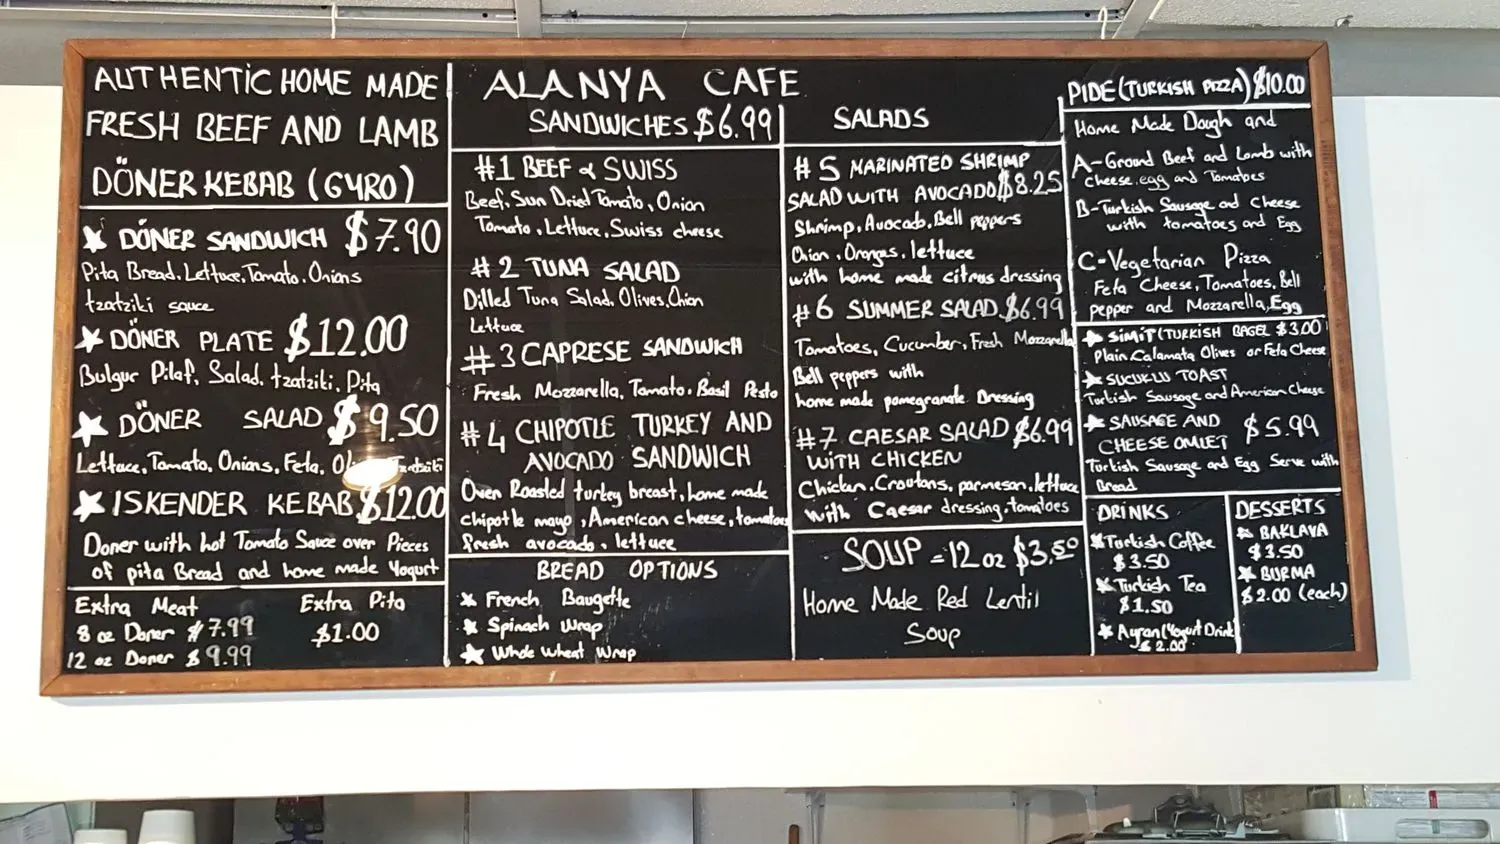 AUTHENTIC HOME MADE
FRESH BEEF AND LAMB
DÖNER KEBAB (GYRO)
DÖNER SANDWICH $7.90
Pita Bread, Lettuce, Tomato, Onions
tzatziki sauce
DÖNER PLATE $12.00
Bulgur Pilaf, Salad, tzatziki, Pita
DÖNER SALAD $9.50
Lettuce, Tomato, Onions, Feta, tzatziki
ISKENDER KEBAB $12.00
Doner with hot Tomato Sauce over Pieces
of pita Bread and home made Yogurt
Extra Meat
8 oz Doner $7.99
12 oz Doner $9.99
Extra Pita
$1.00
ALANYA CAFE
SANDWICHES $6.99
#1 BEEF & SWISS
Beef, Sun Dried Tomato, Onion
Tomato, Lettuce, Swiss cheese
#2 TUNA SALAD
Dilled Tuna Salad, Olives, Onion
Lettuce
#3 CAPRESE SANDWICH
Fresh Mozzarella, Tomato, Basil Pesto
#4 CHIPOTLE TURKEY AND
AVOCADO SANDWICH
Oven Roasted turkey breast, home made
chipotle mayo, American cheese, tomatoes
fresh avocado, lettuce
BREAD OPTIONS
French Baugette
Spinach Wrap
Whole Wheat Wrap
SALADS
#5 MARINATED SHRIMP
SALAD WITH AVOCADO $8.25
Shrimp, Avocado, Bell peppers
Onion, Oranges, lettuce
with home made citrus dressing
#6 SUMMER SALAD $6.99
Tomatoes, Cucumber, Fresh Mozzarella
Bell peppers with
home made pomegranate Dressing
#7 CAESAR SALAD $6.99
WITH CHICKEN
Chicken, Croutons, parmesan, lettuce
with Caesar dressing, tomatoes
SOUP = 12 oz $3.50
Home Made Red Lentil
Soup
PIDE (TURKISH PIZZA) $10.00
Home Made Dough and
A-Ground Beef and Lamb with
cheese, egg and Tomatoes
B-Turkish Sausage and Cheese
with tomatoes and Egg
C-Vegetarian Pizza
Feta Cheese, Tomatoes, Bell
pepper and Mozzarella, Egg
SIMIT (TURKISH BAGEL $3.00
Plain, Calamata Olives or Feta Cheese
SUCUKLU TOAST
Turkish Sausage and American Cheese
SAUSAGE AND
CHEESE OMLET $5.99
Turkish Sausage and Egg Serve with
Bread
DRINKS
Turkish Coffee
$3.50
Turkish Tea
$1.50
Ayran (Yogurt Drink)
$2.00
DESSERTS
BAKLAVA
$3.50
BURMA
$2.00 (each)